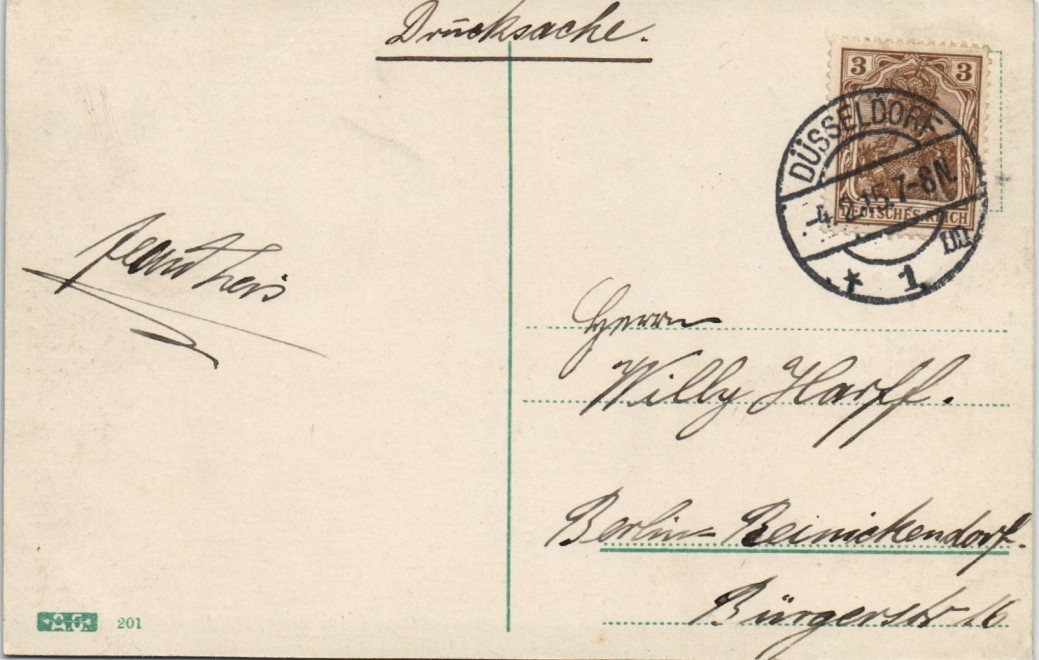 Drucksache.
3 3
DEUTSCHES REICH
DÜSSELDORF
-4.2.15.7-8N.
* 1 m
Herrn
Willy Harff.
Berlin-Reinickendorf.
Bürgerstr 16
201